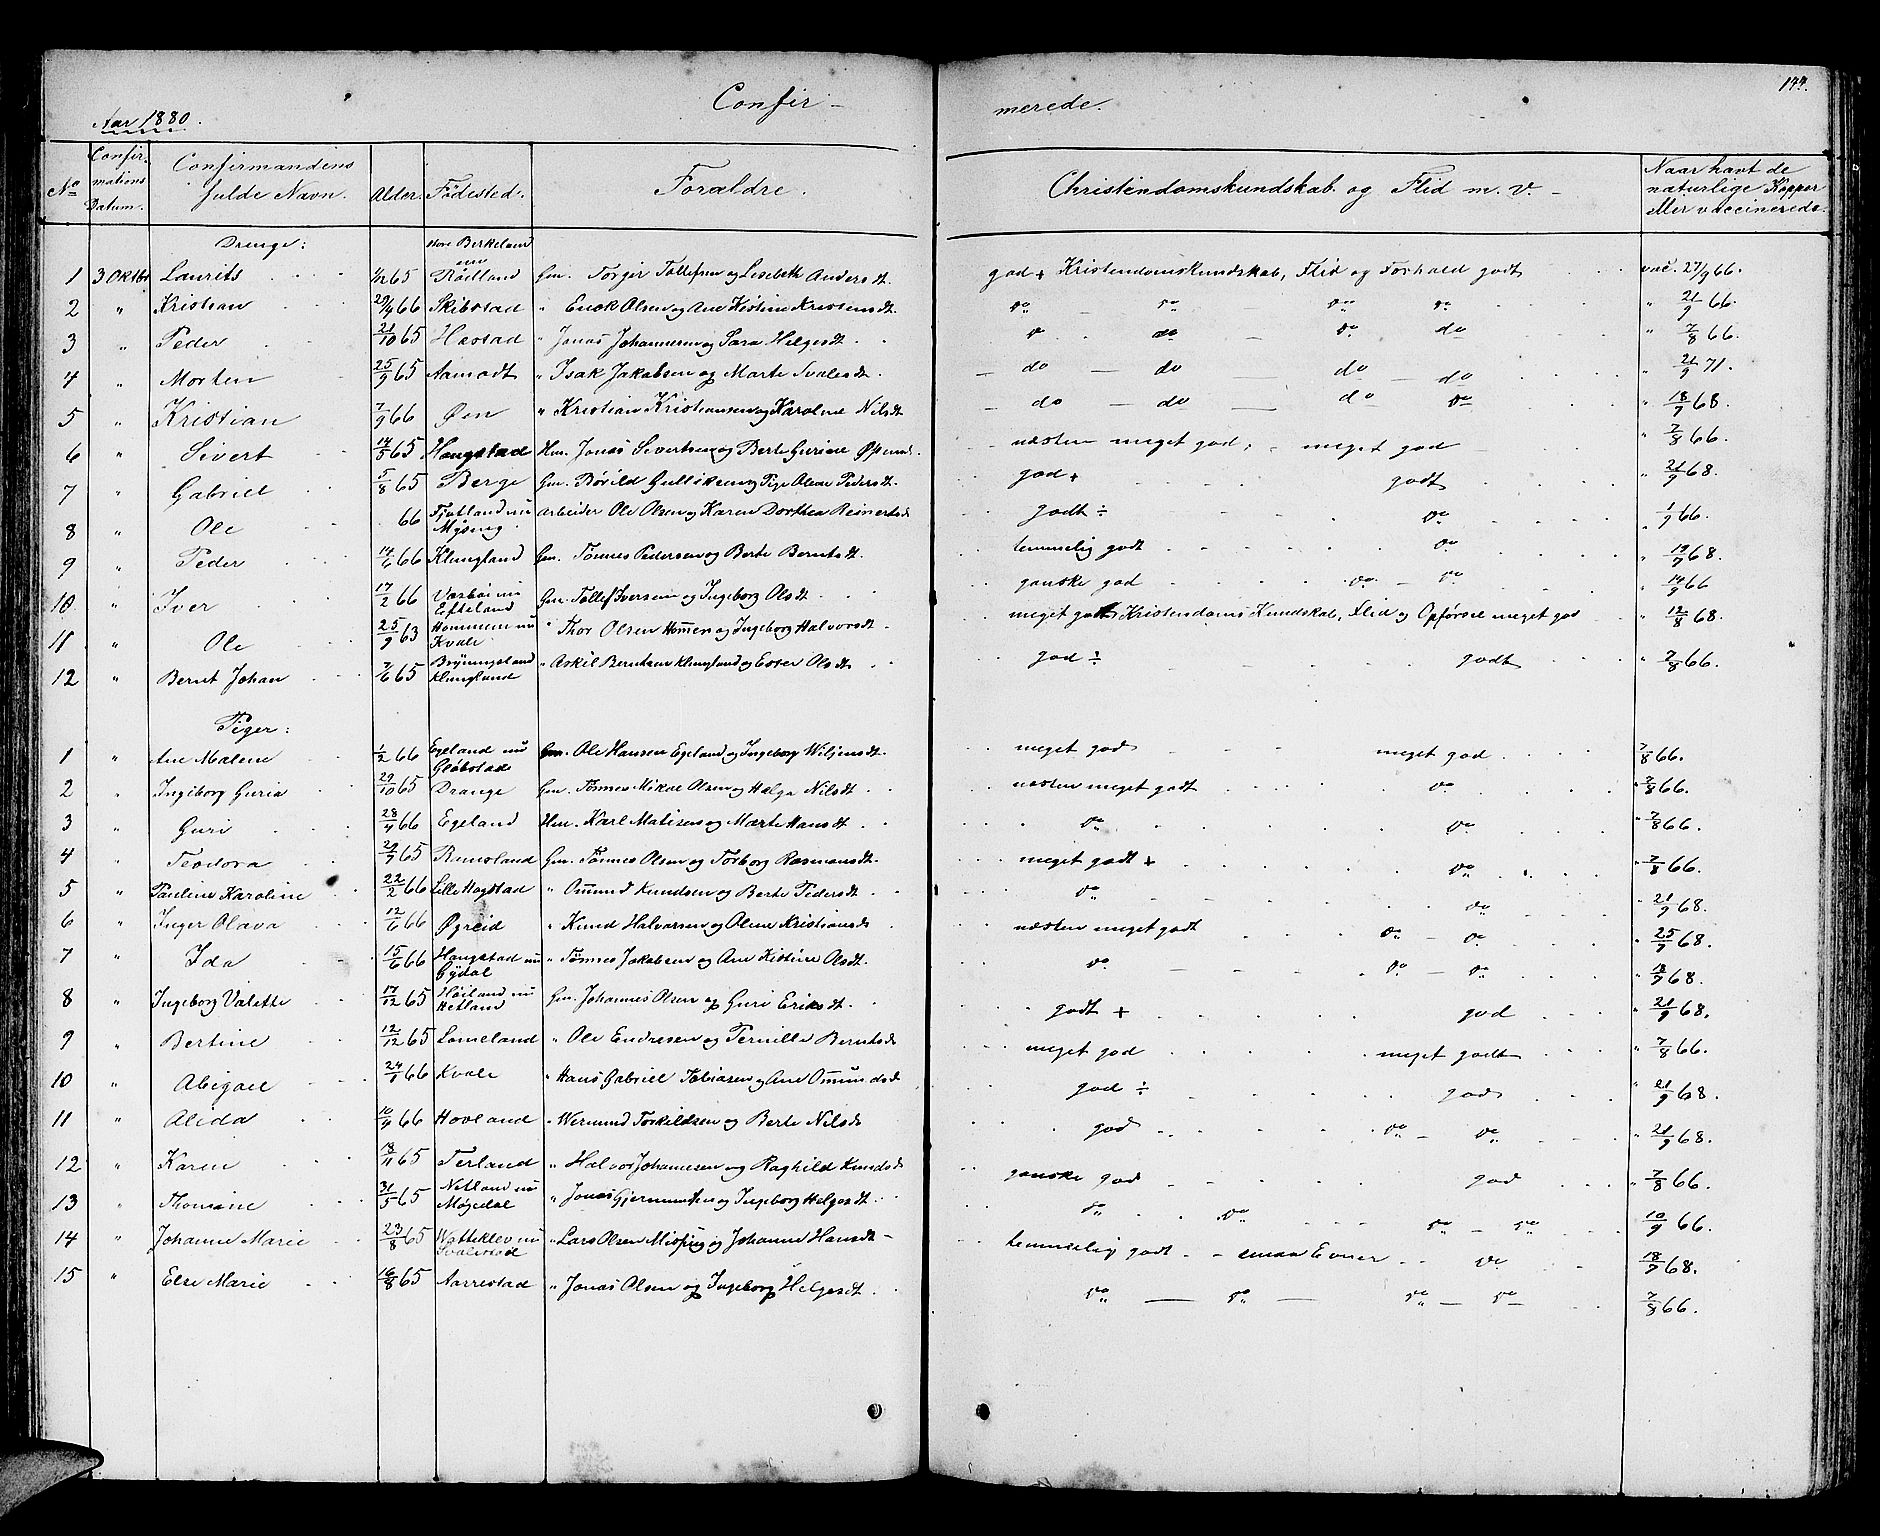 177.
Aar 1880. Confir- merede.
No Confir- mations Datum. Confirmandens fulde Navn. Alder. Fødested. Forældre. Christendomskundskab og Flid m. V. Naar havt de naturlige Kopper eller vaccinerede.
Drenge:
1 3 Oktbr Laurits 65 store Birkeland nu Gm. Torger Tollefsen og Lisebeth Andersdt. god + Kristendomskundskab, Flid og Forhold godt vac. 27/9 66.
2 " Kristian 66 Skibstad " Enok Olsen og Ane Kistine Kristensdt. do do do do " 21/9 66.
3 " Peder 21/10 65 Hæstad " Jonas Johannesen og Sara Helgesdt do do do " 7/8 66.
4 " Morten 25/9 65 Aamodt " Isak Jakobsen og Marte Svalesdt. do do do do " 21/9 71.
5 " Kristian 7/9 66 Øen " Kristian Kristiansen og Karoline Nilsdt do do do do " 18/9 68.
6 " Sivert 14/5 65 Haugstad Hm. Jonas Sivertsen og Berte Gurine næsten meget god, meget god " 7/8 66.
7 " Gabriel 5/8 65 Berge Gm. Bøvild Gulliksen og Pige Olene Pedersdt. god + godt " 21/9 68.
8 " Ole 66 Fjotland nu Mysing arbeider Ole Olsen og Karen Dorthea Reinertsdt godt ÷ do " 1/9 66.
9 " Peder 14/6 66 Klungland Gm. Tønnes Pedersen og Berte Berntsdt. temmelig godt do " 68.
10 " Iver 17/2 66 nu Efteland Gm. Tollef Iversen og Ingeborg Olsdt ganske god do do " 14/9 66
11 " Ole 25/9 63 Hommen nu Kvale " Thor Olsen Homen og Ingeborg Halvorsdt. meget godt Kristendoms Kundskab, Flid og Opførsel meget god " 12/8 68.
12 " Bernt Johan 7/6 65 Bryningsland Klungland " Askil Berntsen Klungland og Ester Olsdt god ÷ godt " 7/8 66.
Piger:
1 " Ane Malene 1/2 66 Egeland nu Gløbstad Gm. Ole Hansen Egeland og Ingeborg Wiljemsdt. meget god meget god 7/8 66.
2 " Ingeborg Guria 29/10 65 Drange Gm. Tønnes Mikal Olsen og Helga Nilsdt. næsten meget godt do " 7/8 66.
3 " Guri 28/4 66 Egeland Hm. Karl Matisen og Marte Hansdt. do do " 7/8 66.
4 " Teodora 65 Runsland Gm. Tønnes Olsen og Torborg Rasmusdt. meget godt + do " 7/8 66.
5 " Pauline Karoline 22/2 66 Lille Hogstad " Omund Knudsen og Berte Pedersdt do do " 21/9 68.
6 " Inger Olava 12/6 66 Øgreid " Knud Halvorsen og Olene Kristiansdt næsten meget godt do do " 25/9 68.
7 " Ida 15/6 66 Haugstad nu Eydal " Tønnes Jakobsen og Ane Kistine Olsdt. do do do " 18/9 68.
8 " Ingeborg Valette 17/12 65 Høiland nu Hetland Gm. Johannes Olsen og Guri Eriksdt. godt + god " 21/9 68.
9 " Bertine 12/12 65 Lomeland " Ole Endresen og Pernille Berntsdt meget god meget godt " 7/8 66.
10 " Abigael 24/1 66 Kvale " Hans Gabriel Tobiasen og Ane Omundsdt god ÷ god " 21/9 68.
11 " Alida 10/4 66 Hovland " Wermund Torkildsen og Berte Nilsdt god do do " 21/9 68.
12 " Karen 18/11 65 Terland " Halvor Johannesen og Raghild Knudsdt ganske god god " 7/8 66.
13 " Thomine 31/5 65 Netland nu Møgedal " Jonas Gjermundsen og Ingeborg Helgesdt do do do do 10/9 66.
14 " Johanne Marie 23/8 65 Watteklev nu Svalestad " Lars Olsen og Johanne Hansdt temmelig godt smaa Evner do 18/9 68.
15 " Else Marie 16/8 65 Aarrestad " Jonas Olsen og Ingeborg Helgesdt do do do do 7/8 66.